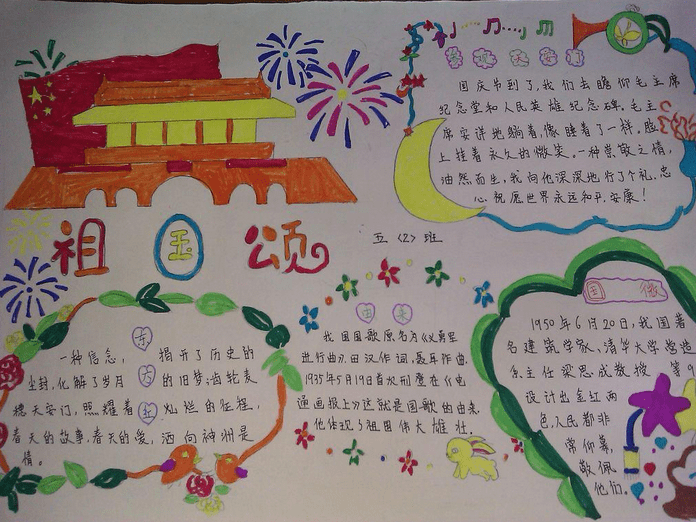 祖国颂
参观天安门
国庆节到了,我们去瞻仰毛主席
纪念堂和人民英雄纪念碑。毛主
席安详地躺着,像睡着了一样。脸
上挂着永久的微笑。一种崇敬之情,
油然而生,我向他深深地行了个礼,忠
心祝愿世界永远和平,安康!
五〈2〉班
东方红
一种信念, 揭开了历史的
尘封,化解了岁月 的旧梦;齿轮麦
穗天安门,照耀着 灿烂的征程,
春天的故事,春天的爱,洒向神州是
情。
国歌
我国国歌原名为《义勇军
进行曲》,田汉作词,聂耳作曲,
1935年5月19日首次刊废在《电
通画报上》这就是国歌的由来,
他体现了祖国伟大雄壮。
国 徽
1950年6月20日,我国著
名建筑学家、清华大学营造
系主任梁思成教授 第9
设计出金红两
色,人民都非
常仰慕,
敬佩
他们。